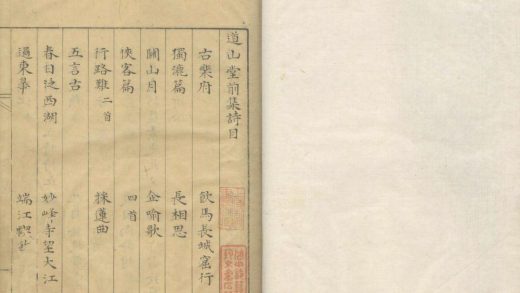 道山堂前集詩目
古樂府 飲馬長城窟行
獨漉篇 長相思
關山月 企喻歌
俠客篇 四首
行路難二首 採蓮曲
五言古
春日泛西湖 妙峰寺望大江
過東 端江